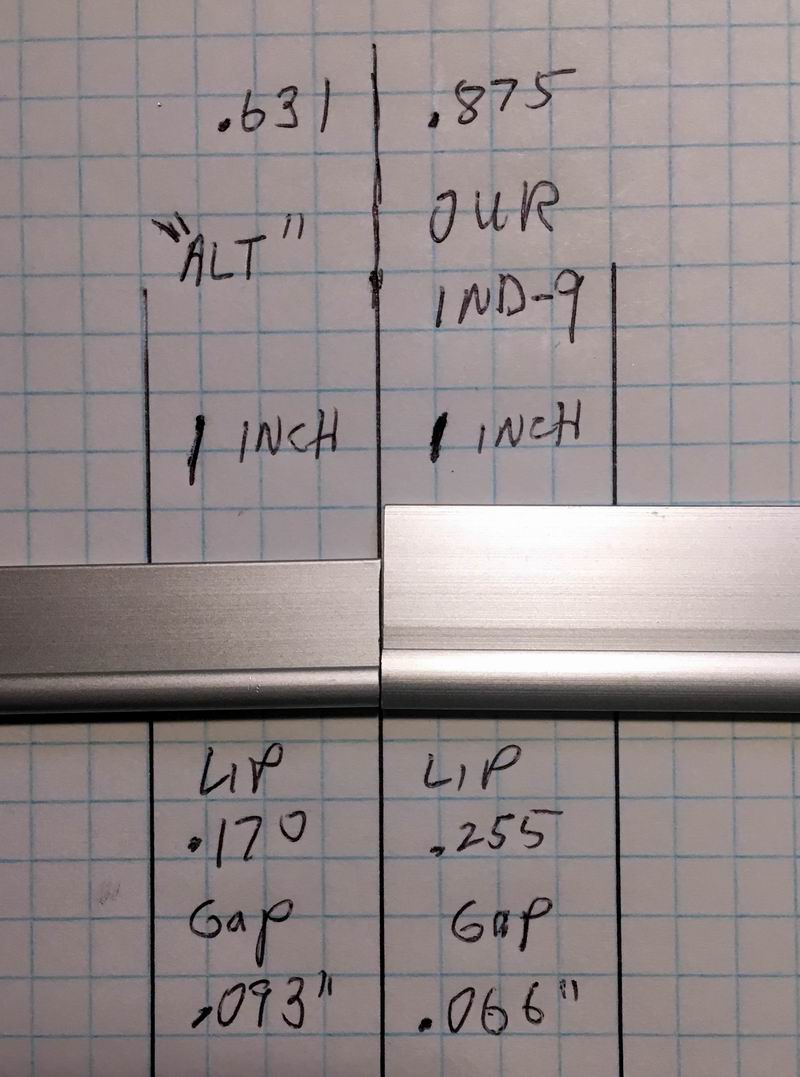 .631
"ALT"
1 INCH
.875
OUR
IND-9
1 INCH
LIP
.170
Gap
.093"
LIP
.255
GaP
.066"